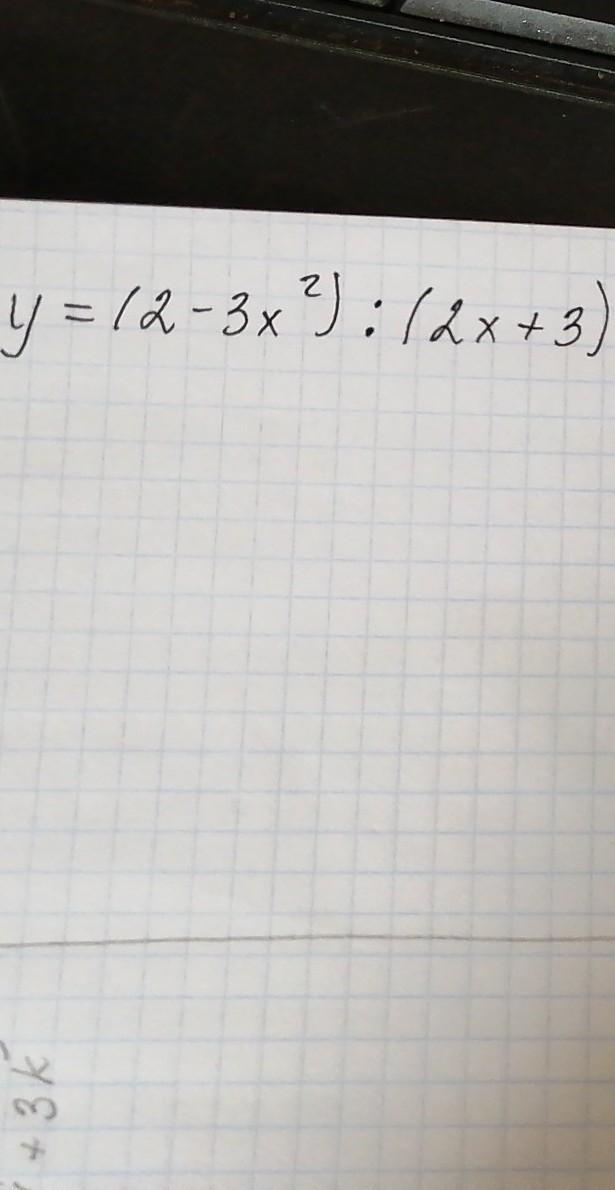 y = (2 - 3x²) : (2x + 3)
+ 3k